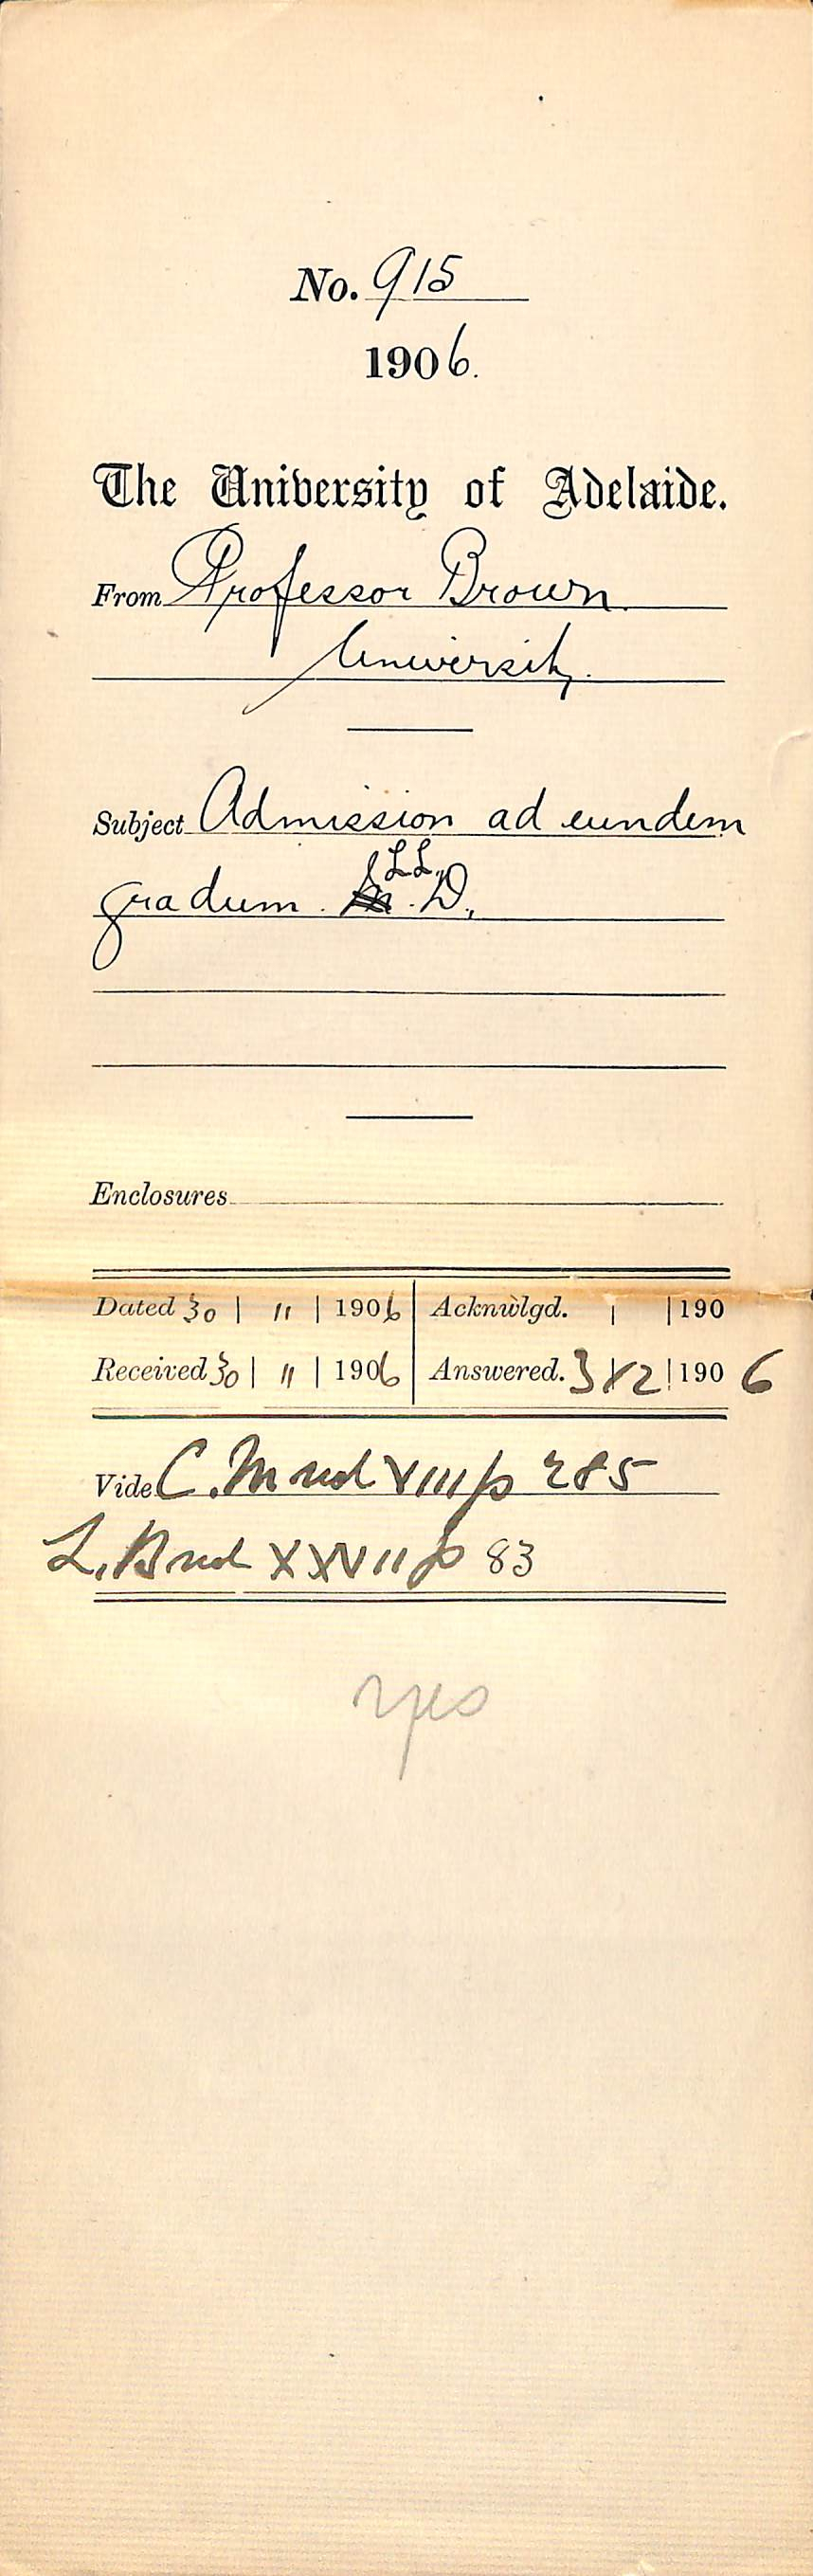 No. 915
1906.
The University of Adelaide.
From Professor Brown
University.
Subject Admission ad eundem
gradum. LL.D.
Enclosures
Dated 30 | 11 | 1906 Acknwlgd. | | 190
Received 30 | 11 | 1906 Answered. 3 | 12 | 1906
Vide C. M vol VIII p 285
L. B vol XXVII p 83
yes